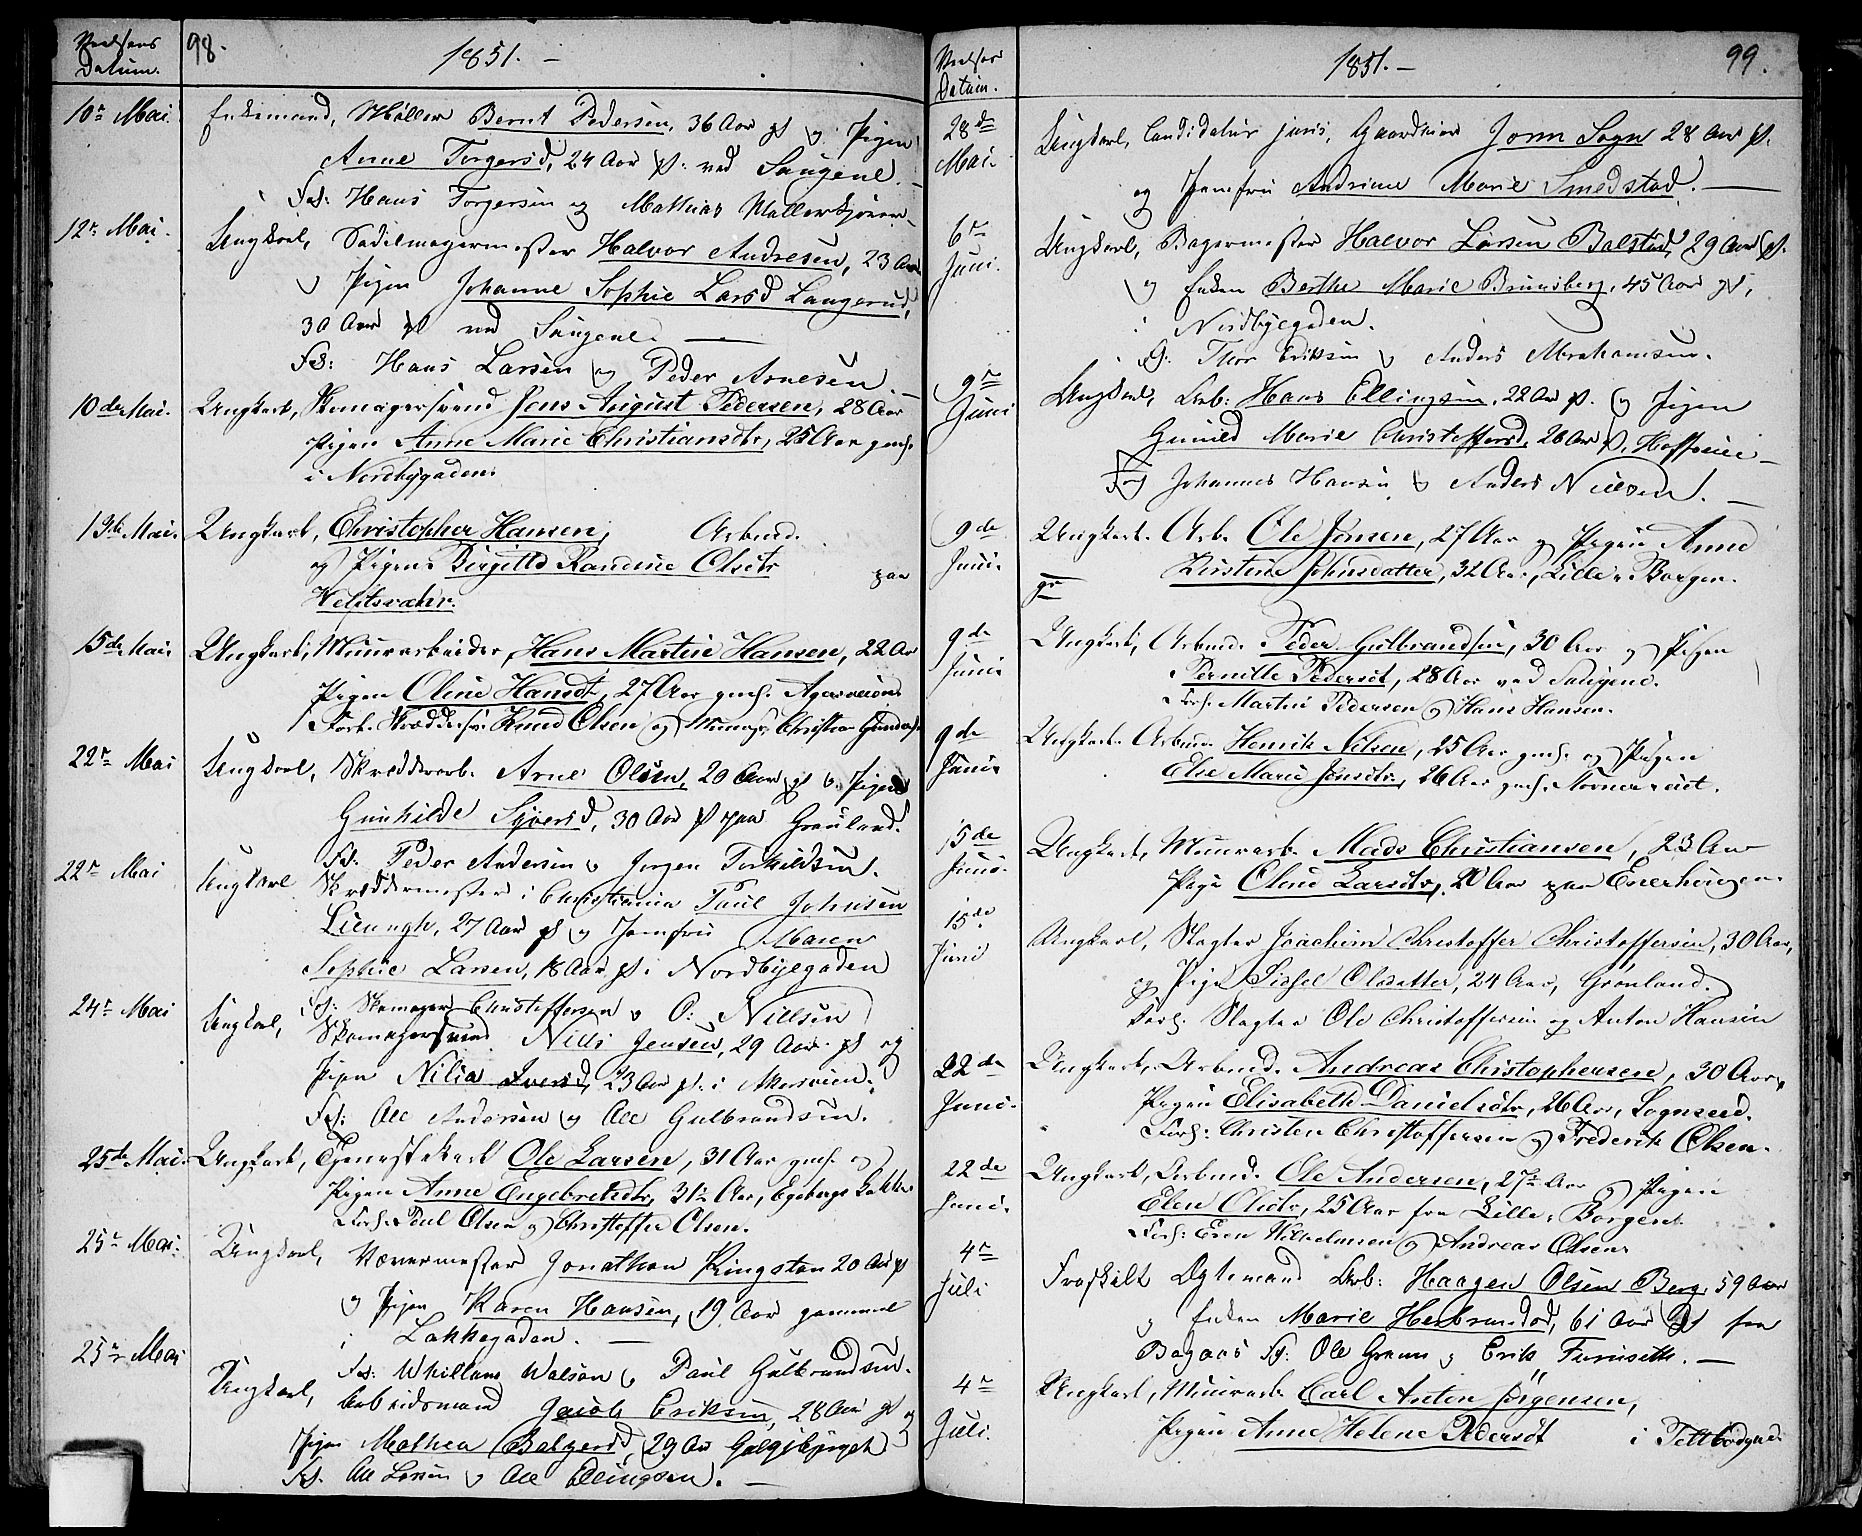 Vielsens
Datum.
98.
1851. –
10de Mai. Enkemand, Møller Bernt Pedersen, 36 Aar gl og Pigen
Anne Torgersd, 24 Aar gl. ved Saugene.
Fs: Hans Torgersen og Mathias
12te Mai. Ungkarl, Sadelmagermester Halvor Andresen, 23 Aar
og Pigen Johanne Sophie Larsd Langerud,
30 Aar gl ved Saugene. –
Fs: Hans Larsen og Peder Arnesen. –
10de Mai. Ungkarl, Skomagersvend Jens August Pedersen, 28 Aar
Pigen Anne Marie Christiansdtr, 25 Aar gml.
i Nordbygaden.
Mai. Ungkarl, Christopher Hansen, Arbmd.
og Pigen Birgitte Randine Olsdtr paa
15de Mai. Ungkarl, Muurarbeider, Hans Martin Hansen, 22 Aar
Pigen Oline Hansdt, 27 Aar gml. Agersveien
Forl. Skræddersv. Knud Olsen og Christian
22de Mai Ungkarl, Skrædderarb. Arne Olsen, 20 Aar gl og Pigen
Gunhilde Syversd, 30 Aar gl paa Grønland.
Fs: Peder Andersen og Jørgen Torkildsen.
22de Mai Ungkarl Skræddermester i Christiania Paul Johnsen
27 Aar gl og Jomfru Maren
Sophie Larsen, 18 Aar gl i Nordbyegaden
Fs: Skomager Christoffersen og O: Nielsen
24de Mai Ungkarl, Skomagersvend Niels Jensen, 29 Aar gl og
Pigen Nilia Iversd, 23 Aar gl. i Akersveien.
Fs: Ole Andersen og Ole Gulbrandsen.
25de Mai. Ungkarl, Tjenestekarl Ole Larsen, 31 Aar gml. og
Pigen Anne Engebretsdtr, 31½ Aar, Egebergs Løkke
Forl. Poul Olsen og Christoffer Olsen.
25de Mai. Ungkarl, Vævermester Jonathan Kingston 20 Aar gl
og Pigen Karen Hansen, 19 Aar gammel
i Lakkegaden. –
Fs: Whilliam Watson og Paul Gulbrandsen.
25de Mai Ungkarl, Arbeidsmand Jacob Eriksen, 28 Aar gl og
Pigen Mathea Balzersd, 29 Aar Galgebjerget
Fs. Ole Larsen og Ole Ellingsen. –
Vielses
Datum.
1851. –
99.
28de Mai. Ungkarl, Candidatus juris, Gaardeier Jorm Sogn 28 Aar gl.
og Jomfru Andrine Marie Smedstad. –
6te Juni. Ungkarl, Bagermester Halvor Larsen Balstad, 29 Aar gl.
og Enken Berthe Marie Bruunsberg, 45 Aar gl,
i Nordbyegaden.
Fs: Thor Eriksen og Anders Abrahamsen.
9de Juni Ungkarl, Arb: Hans Ellingsen, 22 Aar gl. og Pigen
Gunild Marie Christoffersd, 26 Aar gl.
Johannes Hansen og Anders Nielsen. –
9de Juni. Ungkarl. Arb. Ole Jensen, 27 Aar og Pigen Anne
Kirstine Johnsdatter, 32 Aar, Lille-Borgen.
9de Juni Ungkarl, Arbmd. Peder Gulbrandsen, 30 Aar og Pigen
Pernille Pedersdt, 28 Aar ved Saugene.
Forl. Martin Pedersen og Hans Hansen.
9de Juni Ungkarl. Arbmd. Henrik Nilsen, 25 Aar gml. og Pigen
Else Marie Jensdtr, 26 Aar gml.
15de Juni. Ungkarl, Muurarb. Mads Christiansen, 23 Aar
Pige Oline Larsdtr, 20 Aar paa Enerhougen.
15de Juni Ungkarl, Slagter Joachim Christoffer Christoffersen, 30 Aar,
og Pige Sidsel Olsdatter, 24 Aar, Grønland.
Forl. Slagter Ole Christoffersen og Anton Hansen
22de Juni. Ungkarl, Arbmd. Andreas Christophersen, 30 Aar,
Pigen Elisabeth Danielsdtr, 26 Aar, Sognseid.
Forl: Christen Christoffersen og Frederik Olsen.
22de Juni. Ungkarl, Arbmd. Ole Andersen, 27½ Aar og Pigen
Elen Olsdtr, 25 Aar fra Lille-Borgen.
Forl: Even Wilhelmsen og Andreas Olsen.
4de Juli Fraskilt Ægtemand Arb: Haagen Olsen Berg, 59 Aar
og Enken Marie Herbrandsd, 61 Aar gl fra
Bagaas Fs: Ole Gram og Erik Furuseth. –
4de Juli. Ungkarl, Muurarb. Carl Anton Jørgensen,
Pigen Anne Helene Pedersdt i